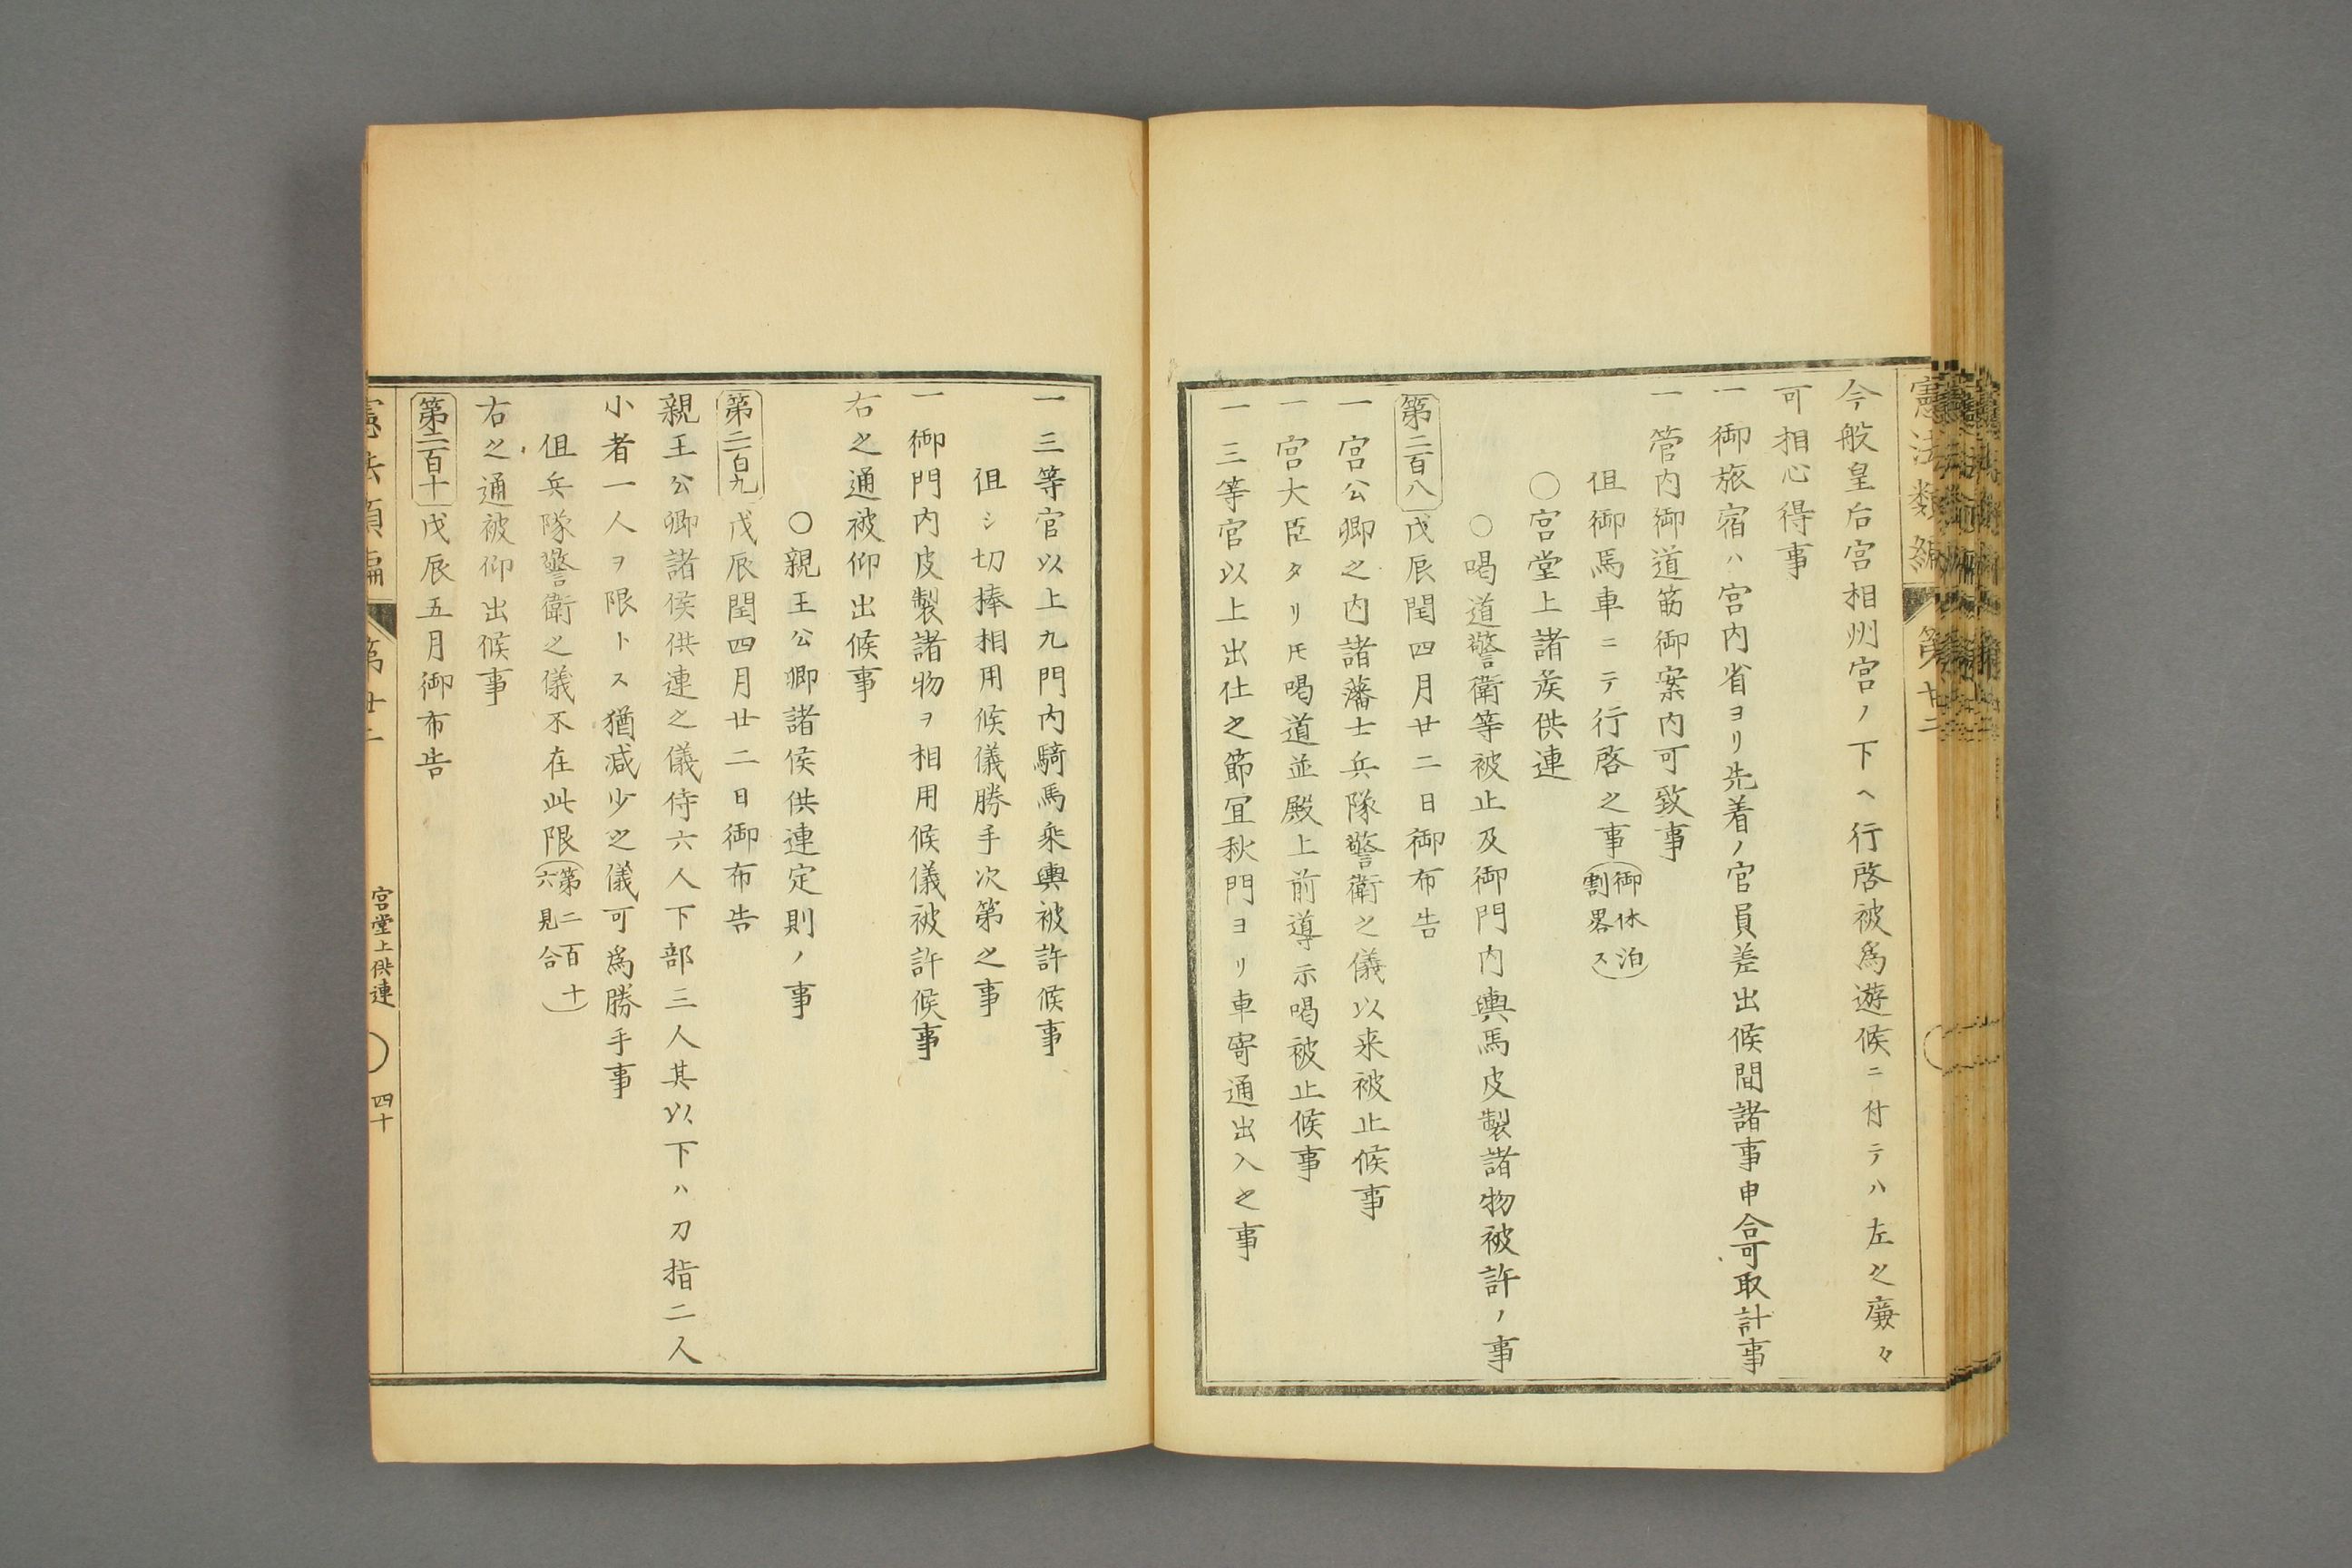 憲法類編 第廿二
今般皇后宮相州宮ノ下ヘ行啓被爲遊候ニ付テハ左之廉々
可相心得事
一御旅宿ハ宮内省ヨリ先着ノ官員差出候間諸事申合可取計事
一管内御道筋御案内可致事
但御馬車ニテ行啓之事(御休泊割畧ス)
○宮堂上諸矦供連
○喝道警衛等被止及御門内輿馬皮製諸物被許ノ事
第二百八 戊辰閏四月廿二日御布告
一宮公卿之内諸藩士兵隊警衛之儀以来被止候事
一宮大臣タリ𪜈喝道並殿上前導示喝被止候事
一三等官以上出仕之節宜秋門ヨリ車寄通出入之事
一三等官以上九門内騎馬乘輿被許候事
但シ切棒相用候儀勝手次第之事
一御門内皮製諸物ヲ相用候儀被許候事
右之通被仰出候事
○親王公卿諸侯供連定則ノ事
第二百九 戊辰閏四月廿二日御布告
親王公卿諸侯供連之儀侍六人下部三人其以下ハ刀指二人
小者一人ヲ限トス猶減少之儀可爲勝手事
但兵隊警衛之儀不在此限(第二百十六見合)
右之通被仰出候事
第二百十 戊辰五月御布告
憲法類編 第廿二 宮堂上供連 四十